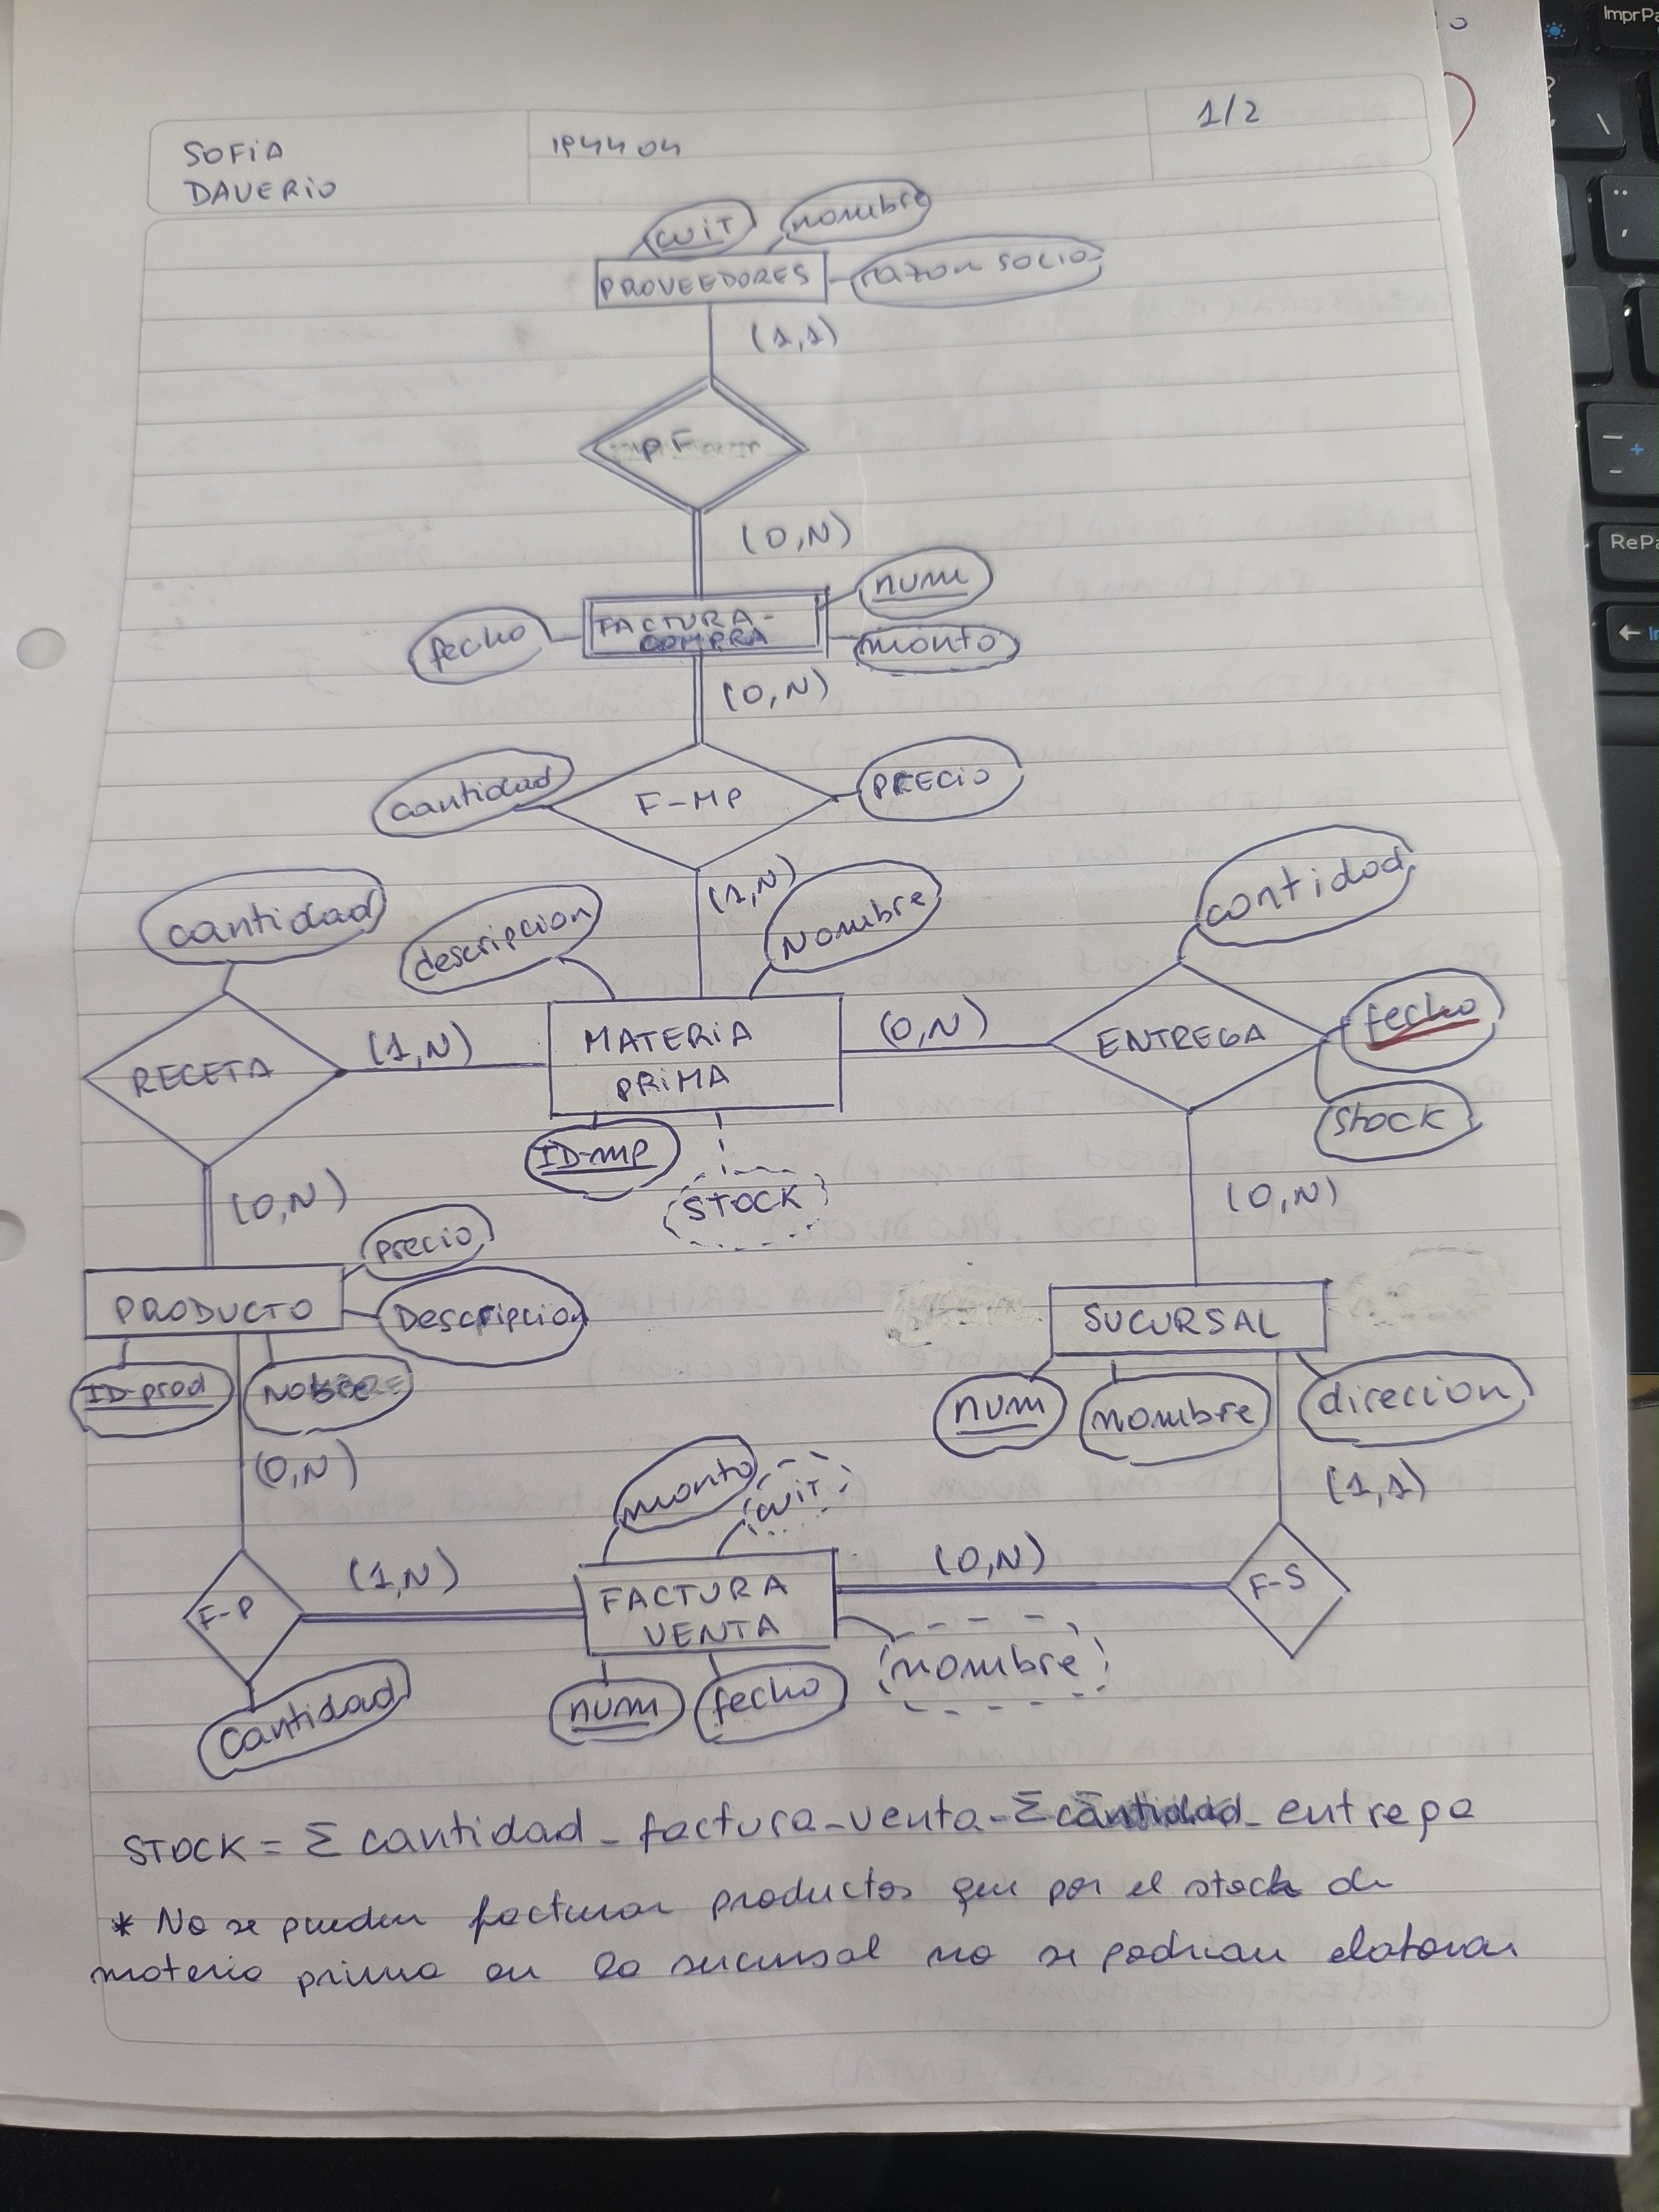 SOFIA
DAVERIO
194404
1/2
CUIT
nombre
PROVEEDORES
razon socio
(1,1)
PF
(0,N)
num
fecha
FACTURA-
COMPRA
monto
(0,N)
cantidad
F-MP
PRECIO
(1,N)
cantidad
descripcion
Nombre
cantidad
RECETA
(1,N)
MATERIA
PRIMA
(0,N)
ENTREGA
fecha
stock
ID-mp
STOCK
(0,N)
(0,N)
precio
PRODUCTO
Descripcion
SUCURSAL
ID-prod
num
nombre
direcion
(0,N)
monto
CUIT
(1,1)
F-P
(1,N)
FACTURA
VENTA
(0,N)
F-S
nombre
Cantidad
num
fecha
STOCK = Σ cantidad - factura-venta - Σ cantidad - entrega
* No se pueden facturar productos que por el stock de
materia prima en la sucursal no se podrian elaborar